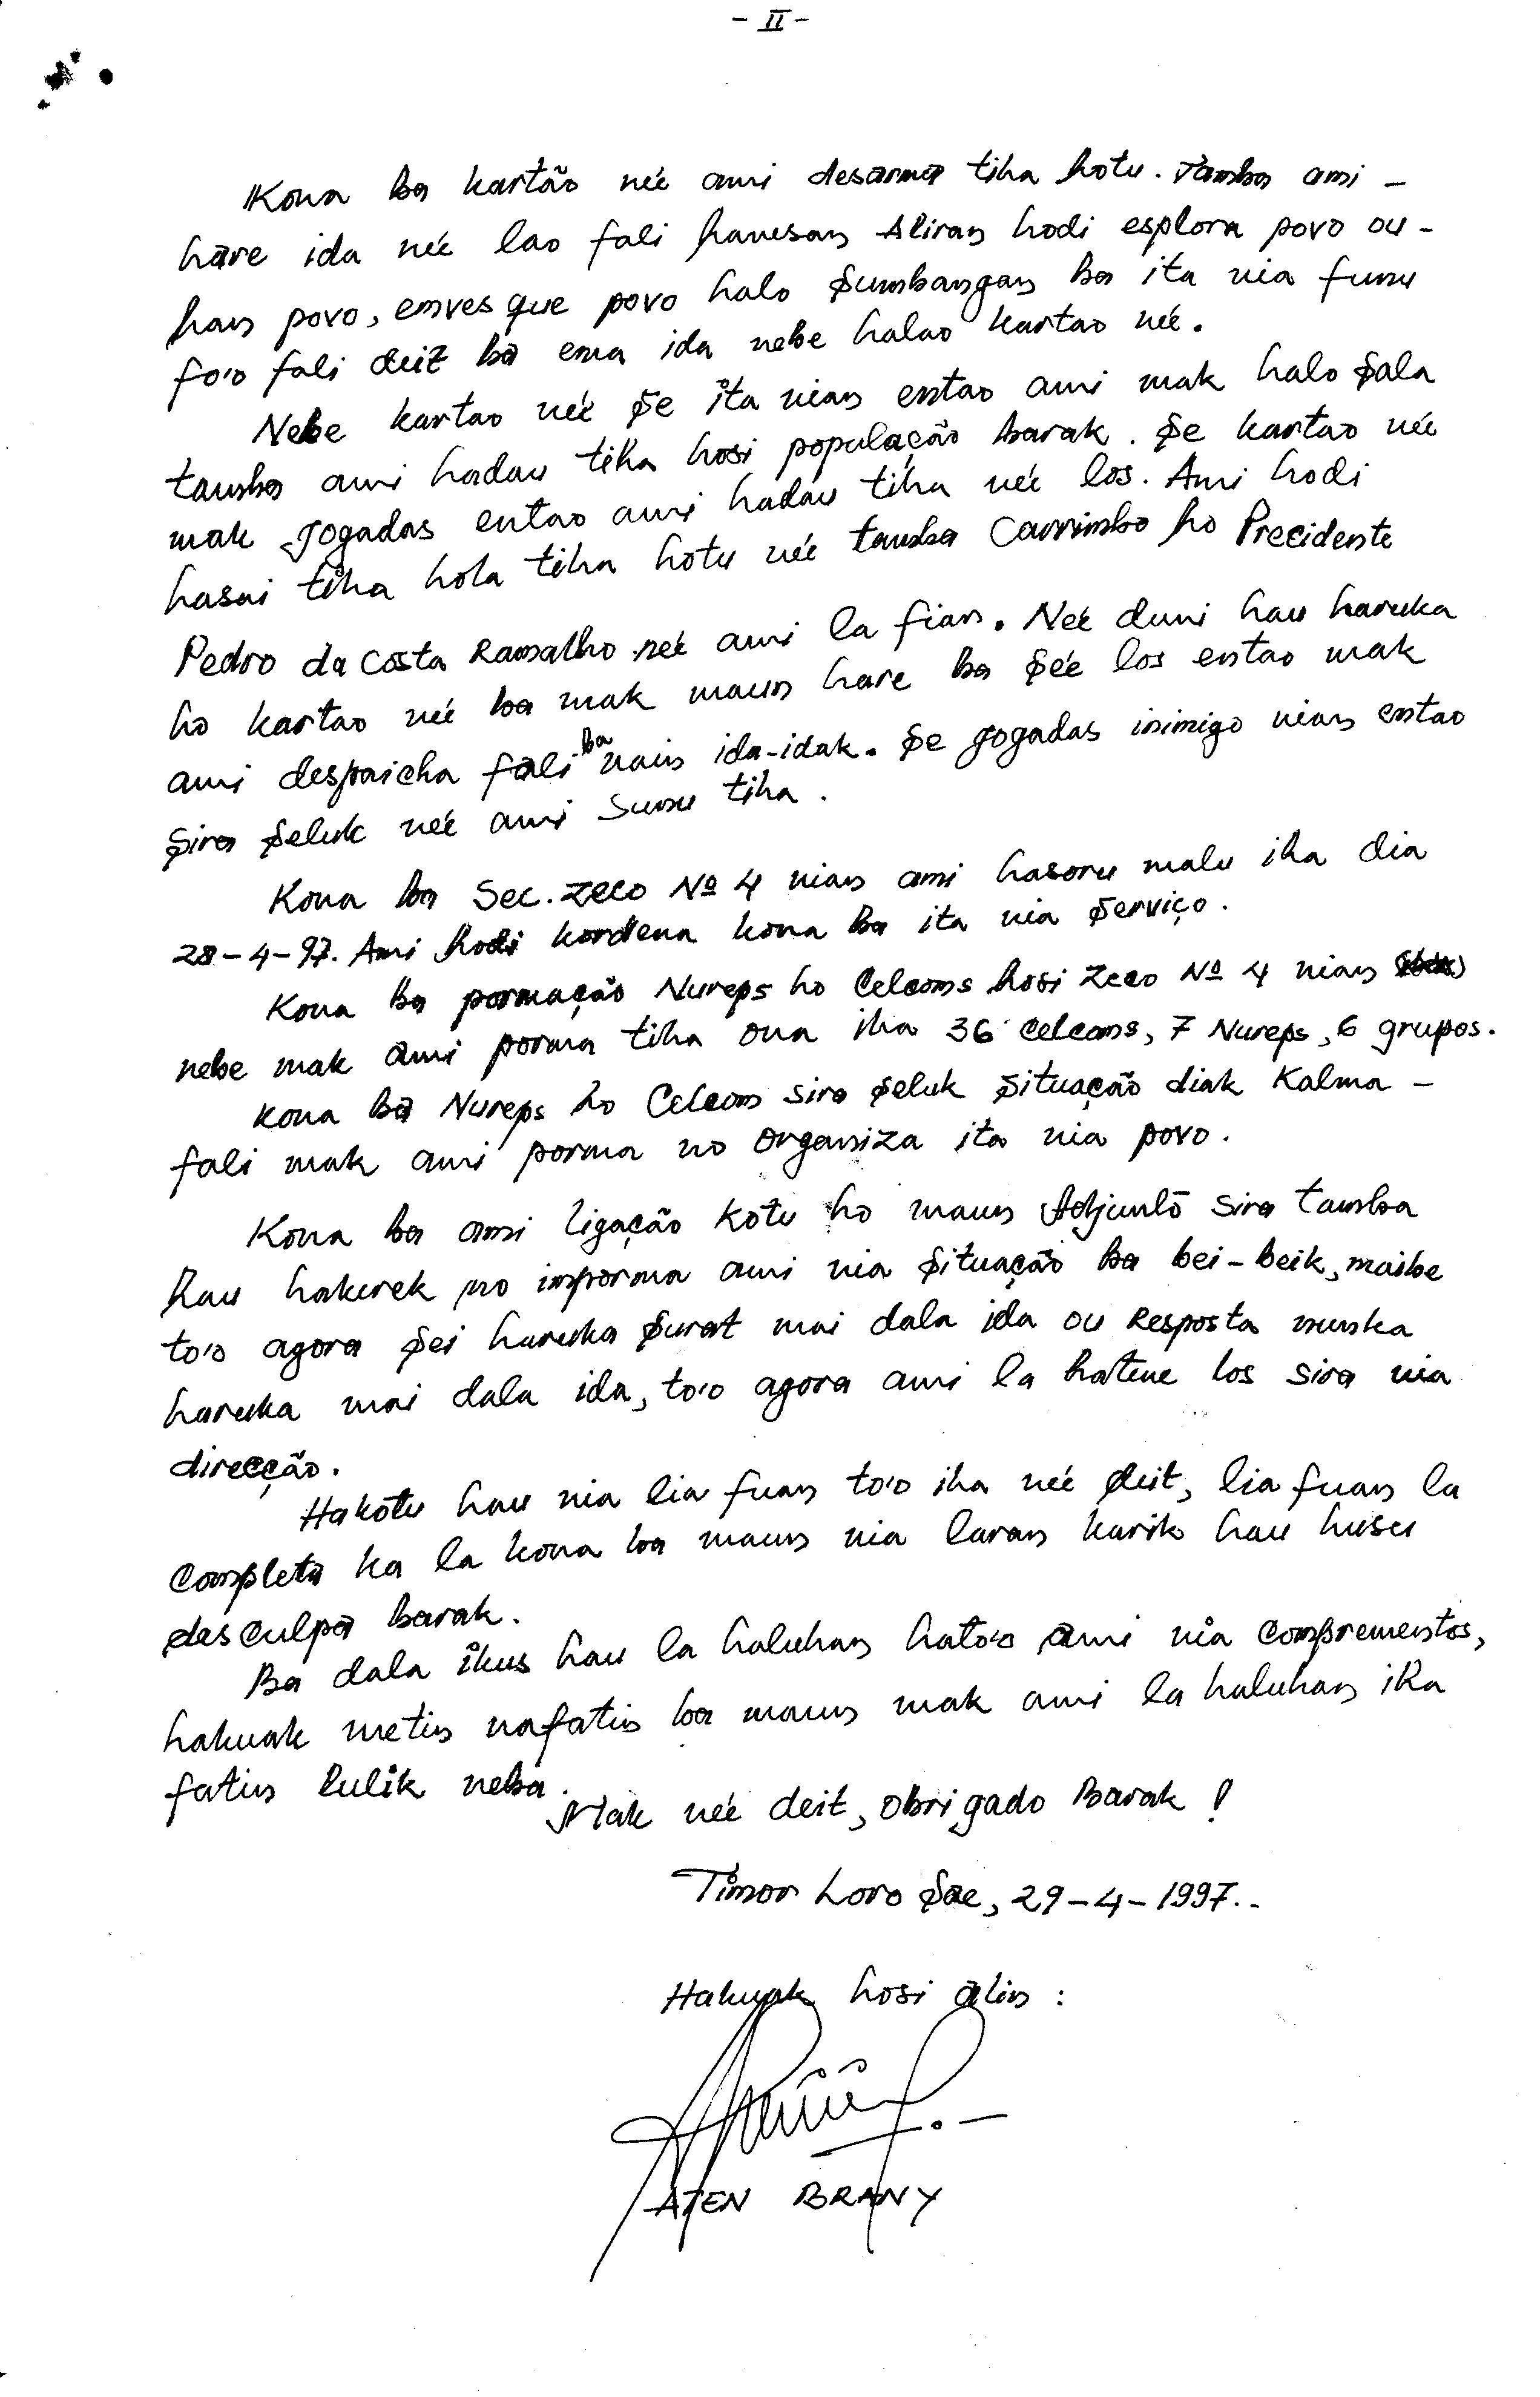 - II -
Kona ba kartão neé ami desarma tiha hotu. Tamba ami -
hare ida neé lao fali hanesan Aliran hodi esplora povo ou -
han povo, enves que povo halo sumbangan ba ita nia funu
fo'o fali deit ba ema ida nebe halao kartao neé.
Nebe kartao neé se ita nian entao ami mak halo sala
tamba ami hadau tiha hosi população barak. Se kartao neé
mak jogadas entao ami hadau tiha neé los. Ami hodi
hasai tiha hola tiha hotu neé tamba Carrimbo ho Precidente
Pedro da Costa Ramalho neé ami la fian. Neé duni hau haruka
ho kartao neé ba mak maun hare ba seé los entao mak
ami despaicha fali ba nain ida-idak. Se jogadas inimigo nian entao
sira seluk neé ami sunu tiha.
Kona ba Sec. Zeco Nº 4 nian ami hasoru malu iha dia
28-4-97. Ami hodi kordena kona ba ita nia serviço.
Kona ba pormação Nureps ho Celcoms hosi Zeco Nº 4 nian
nebe mak ami porma tiha ona iha 36 celcoms, 7 Nureps, 6 grupos.
Kona ba Nureps ho Celcom sira seluk situação diak Kalma -
fali mak ami porma no organiza ita nia povo.
Kona ba ami ligação kotu ho maun Adjunto sira tamba
hau hakerek no imporma ami nia situação ba bei-beik, maibe
to'o agora sei haruka surat mai dala ida ou Resposta nunka
haruka mai dala ida, to'o agora ami la hatene los sira nia
direcção.
Hakotu hau nia lia fuan to'o iha neé deit, lia fuan la
completa ka la kona ba maun nia laran karik hau husu
desculpa barak.
Ba dala ikus hau la haluhan hato'o ami nia comprementos,
hakuak metin nafatin ba maun mak ami la haluhan iha
fatin lulik neba.
Mak neé deit, obrigado Barak !
Timor Loro Sae, 29-4-1997..
Hakuak hosi alin :
ATEN BRANY